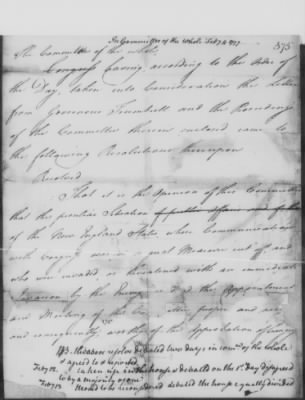 In Committee of the Whole Feb 7 & 1777
575
The Committee of the whole
Congress having according to the Order of
the Day, taken into Consideration the Letter
from Governour Trumbull and the Proceedings
of the Committee therein enclosed came to
the following Resolutions thereupon
Resolved
That it is the Opinion of this Committee
that the peculiar Situation
of the New England States whose Communication
with Congress was in a great Measure cut off and
who were invaded or threatened with an immediate
Invasion by the Enemy the Appointment
and Meeting of the Committee proper and
and consequently worthy of the Approbation of Congress
NB. the above resolve debated two days in comee of the whole
& agreed to & reported
Feby 12. taken up in the house & debated on the 1st day disagreed
to by a majority of one
Feby 13 Moved to be reconsidered debated the house equally divided